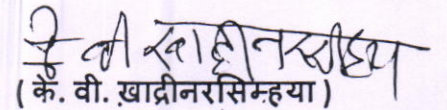 के. वी. खाद्रीनरसिम्हया
( के. वी. ख़ाद्रीनरसिम्हया )